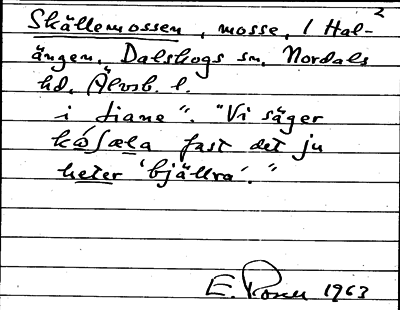 2
Skällemossen, mosse, / Hal-
ängen, Dalskogs sn, Nordals
hd, Älvsb. l.
i liane". "Vi säger
kåʃæla fast det ju
heter 'bjällra'."
E. 1963